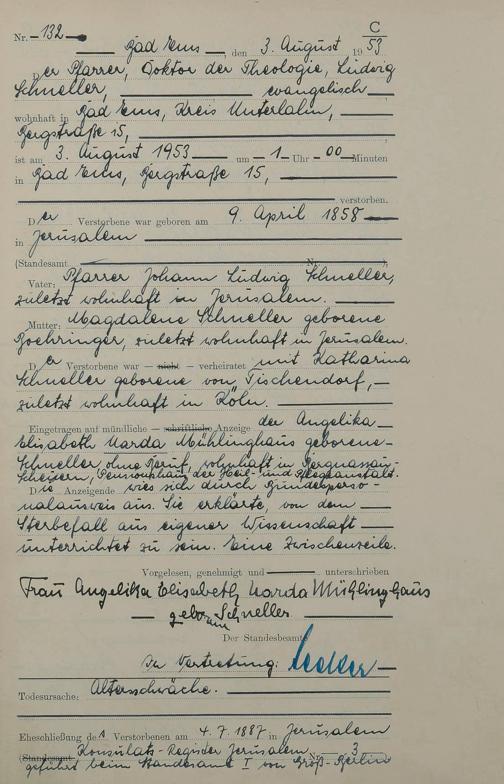 C
Nr. 132
Bad Ems, den 3. August 1953
Der Pfarrer, Doktor der Theologie, Ludwig
Schneller, evangelisch
wohnhaft in Bad Ems, Kreis Unterlahn,
Bergstraße 15,
ist am 3. August 1953 um 1 Uhr 00 Minuten
in Bad Ems, Bergstraße 15,
verstorben.
Der Verstorbene war geboren am 9. April 1858
in Jerusalem
(Standesamt Nr. ),
Vater: Pfarrer Johann Ludwig Schneller,
zuletzt wohnhaft in Jerusalem.
Mutter: Magdalene Schneller geborene
Boehringer, zuletzt wohnhaft in Jerusalem.
Der Verstorbene war — nicht — verheiratet mit Katharina
Schneller geborene von Tischendorf,
zuletzt wohnhaft in Köln.
Eingetragen auf mündliche — schriftliche Anzeige der Angelika
Elisabeth Warda Mühlinghaus geborene
Schneller, ohne Beruf, wohnhaft in Bergnassau-
Scheuern, Pensionshaus der Heil- und Pflegeanstalt.
Die Anzeigende wies sich durch Bundesperso-
nalausweis aus. Sie erklärte, von dem
Sterbefall aus eigener Wissenschaft
unterrichtet zu sein. Eine Zwischenzeile.
Vorgelesen, genehmigt und unterschrieben
Frau Angelika Elisabeth Warda Mühlinghaus
geborene Schneller
Der Standesbeamte
In Vertretung:
Todesursache: Altersschwäche.
Eheschließung des Verstorbenen am 4.7.1887 in Jerusalem
(Standesamt Konsulats-Register Jerusalem Nr. 3
geführt beim Standesamt I von Groß-Berlin